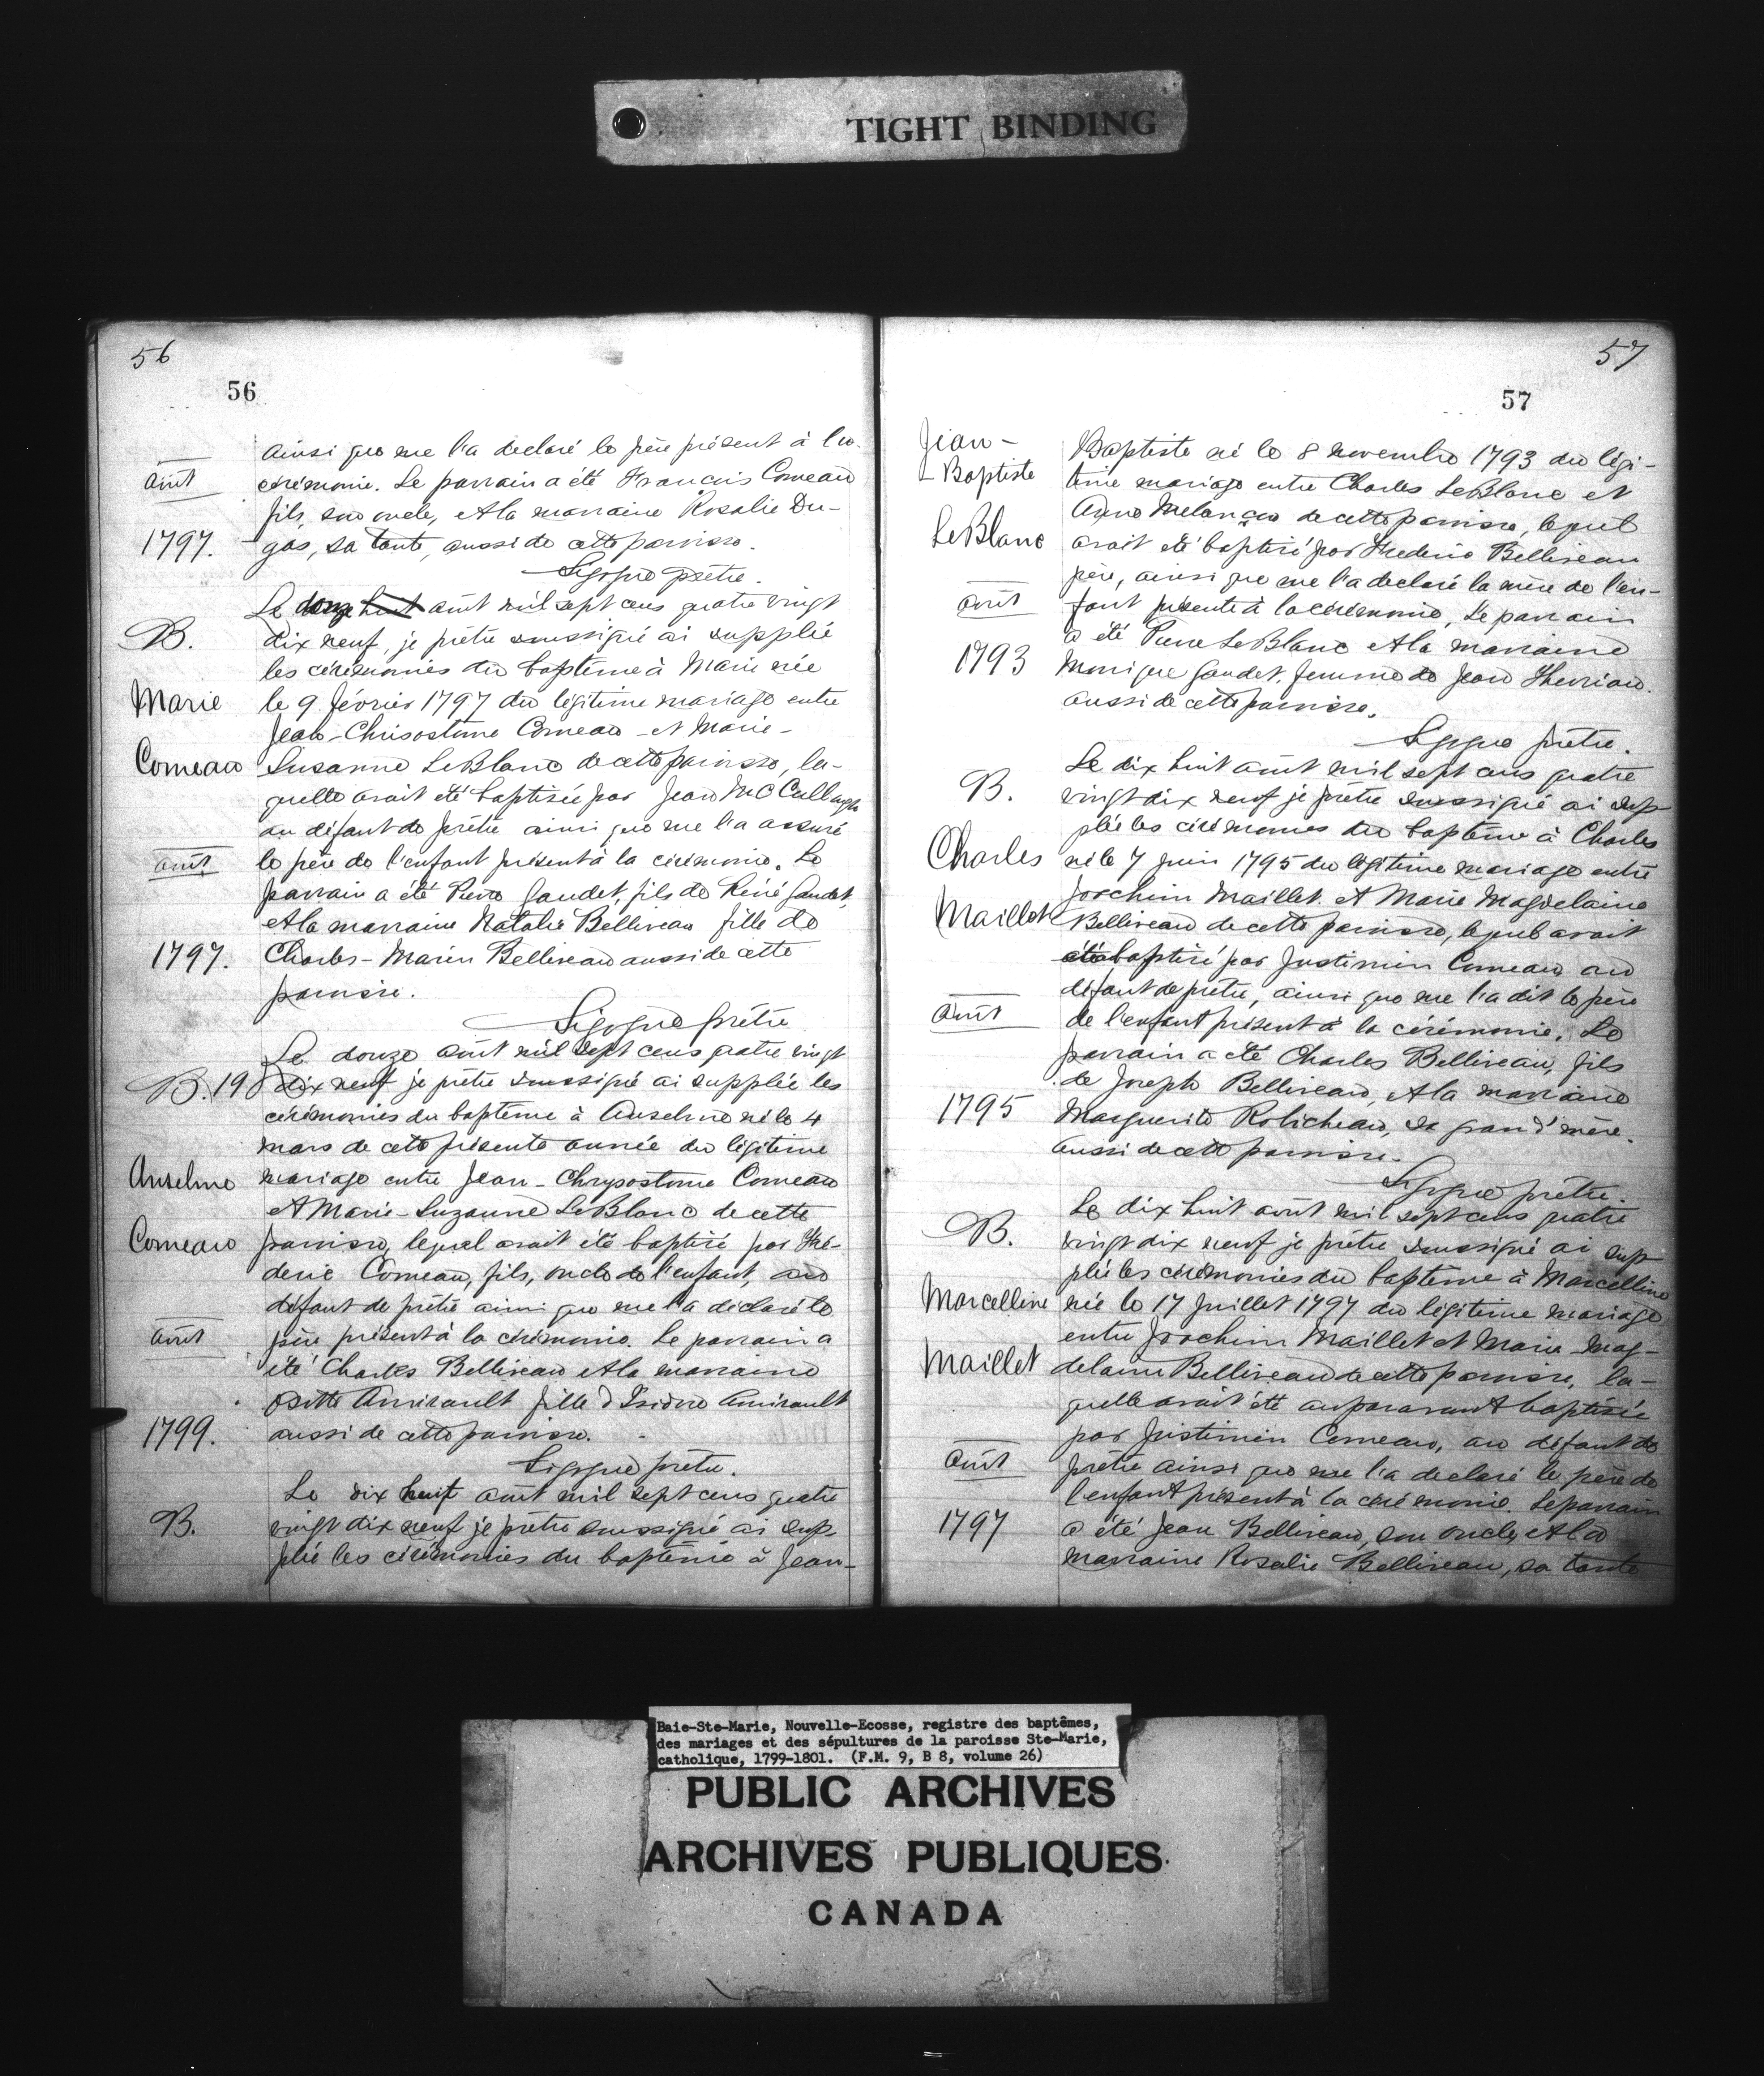 TIGHT BINDING
56
56
août
1797.
ainsi que me l'a declaré le père présent à la
cérémonie. Le parrain a été François Comeau
fils, son oncle, et la marraine Rosalie Du-
gas, sa tante, aussi de cette paroisse.
Sigogne prêtre.
B.
Marie
Comeau
août
1797.
Le douze août mil sept cens quatre vingt
dix neuf, je prêtre soussigné ai supplié
les cérémonies du baptême à Marie née
le 9 février 1797 du légitime mariage entre
Jean-Chrisostome Comeau et Marie-
Susanne LeBlanc de cette paroisse, la-
quelle avait été baptisée par Jean McCullough
au défaut de prêtre ainsi que me l'a assuré
le père de l'enfant présent à la cérémonie. Le
parrain a été Pierre Gaudet, fils de Réné Gaudet
et la marraine Natalie Belliveau fille de
Charles-Marin Belliveau aussi de cette
paroisse.
Sigogne prêtre
B. 19
Anselme
Comeau
août
1799.
Le douze août mil sept cens quatre vingt
dix neuf je prêtre soussigné ai supplée les
cérémonies du baptême à Anselme né le 4
mars de cette présente année du légitime
mariage entre Jean-Chrysostome Comeau
et Marie-Suzanne LeBlanc de cette
paroisse, lequel avait été baptisé par Fré-
deric Comeau, fils, oncle de l'enfant, au
défaut de prêtre ainsi que me l'a déclaré le
père présent à la cérémonie. Le parrain a
été Charles Belliveau et la marraine
Ositte Amirault fille d'Isidore Amirault
aussi de cette paroisse.
Sigogne prêtre.
B.
Le dix huit août mil sept cens quatre
vingt dix neuf je prêtre soussigné ai sup-
plié les cérémonies du baptême à Jean-
57
57
Jean-
Baptiste
LeBlanc
août
1793
Baptiste né le 8 novembre 1793 du légi-
time mariage entre Charles LeBlanc et
Anne Melançon de cette paroisse, lequel
avait été baptisé par Frederic Belliveau
père, ainsi que me l'a declaré la mère de l'en-
fant présente à la cérémonie, Le parrain
a été Pierre LeBlanc et la marraine
Monique Gaudet, femme de Jean Therriau.
aussi de cette paroisse.
Sigogne prêtre.
B.
Charles
Maillet
août
1795
Le dix huit août mil sept cens quatre
vingt dix neuf je prêtre soussigné ai sup-
plié les cérémonies du baptême à Charles
né le 7 juin 1795 du légitime mariage entre
Joachim Maillet et Marie Magdelaine
Belliveau de cette paroisse, lequel avait
été baptisé par Justinien Comeau au
défaut de prêtre, ainsi que me l'a dit le père
de l'enfant présent à la cérémonie. Le
parrain a été Charles Belliveau, fils
de Joseph Belliveau, et la marraine
Marguerite Robicheau, sa grand'mère.
aussi de cette paroisse.
Sigogne prêtre.
B.
Marcelline
Maillet
août
1797
Le dix huit août mil sept cens quatre
vingt dix neuf je prêtre soussigné ai sup-
plié les cérémonies du baptême à Marcelline
née le 17 juillet 1797 du légitime mariage
entre Joachim Maillet et Marie Mag-
delaine Belliveau de cette paroisse, la-
quelle avait été auparavant baptisée
par Justinien Comeau, au défaut de
prêtre ainsi que me l'a declaré le père de
l'enfant présent à la cérémonie. Le parrain
a été Jean Belliveau, son oncle, et la
marraine Rosalie Belliveau, sa tante
Baie-Ste-Marie, Nouvelle-Ecosse, registre des baptêmes,
des mariages et des sépultures de la paroisse Ste-Marie,
catholique, 1799-1801. (F.M. 9, B 8, volume 26)
PUBLIC ARCHIVES
ARCHIVES PUBLIQUES
CANADA